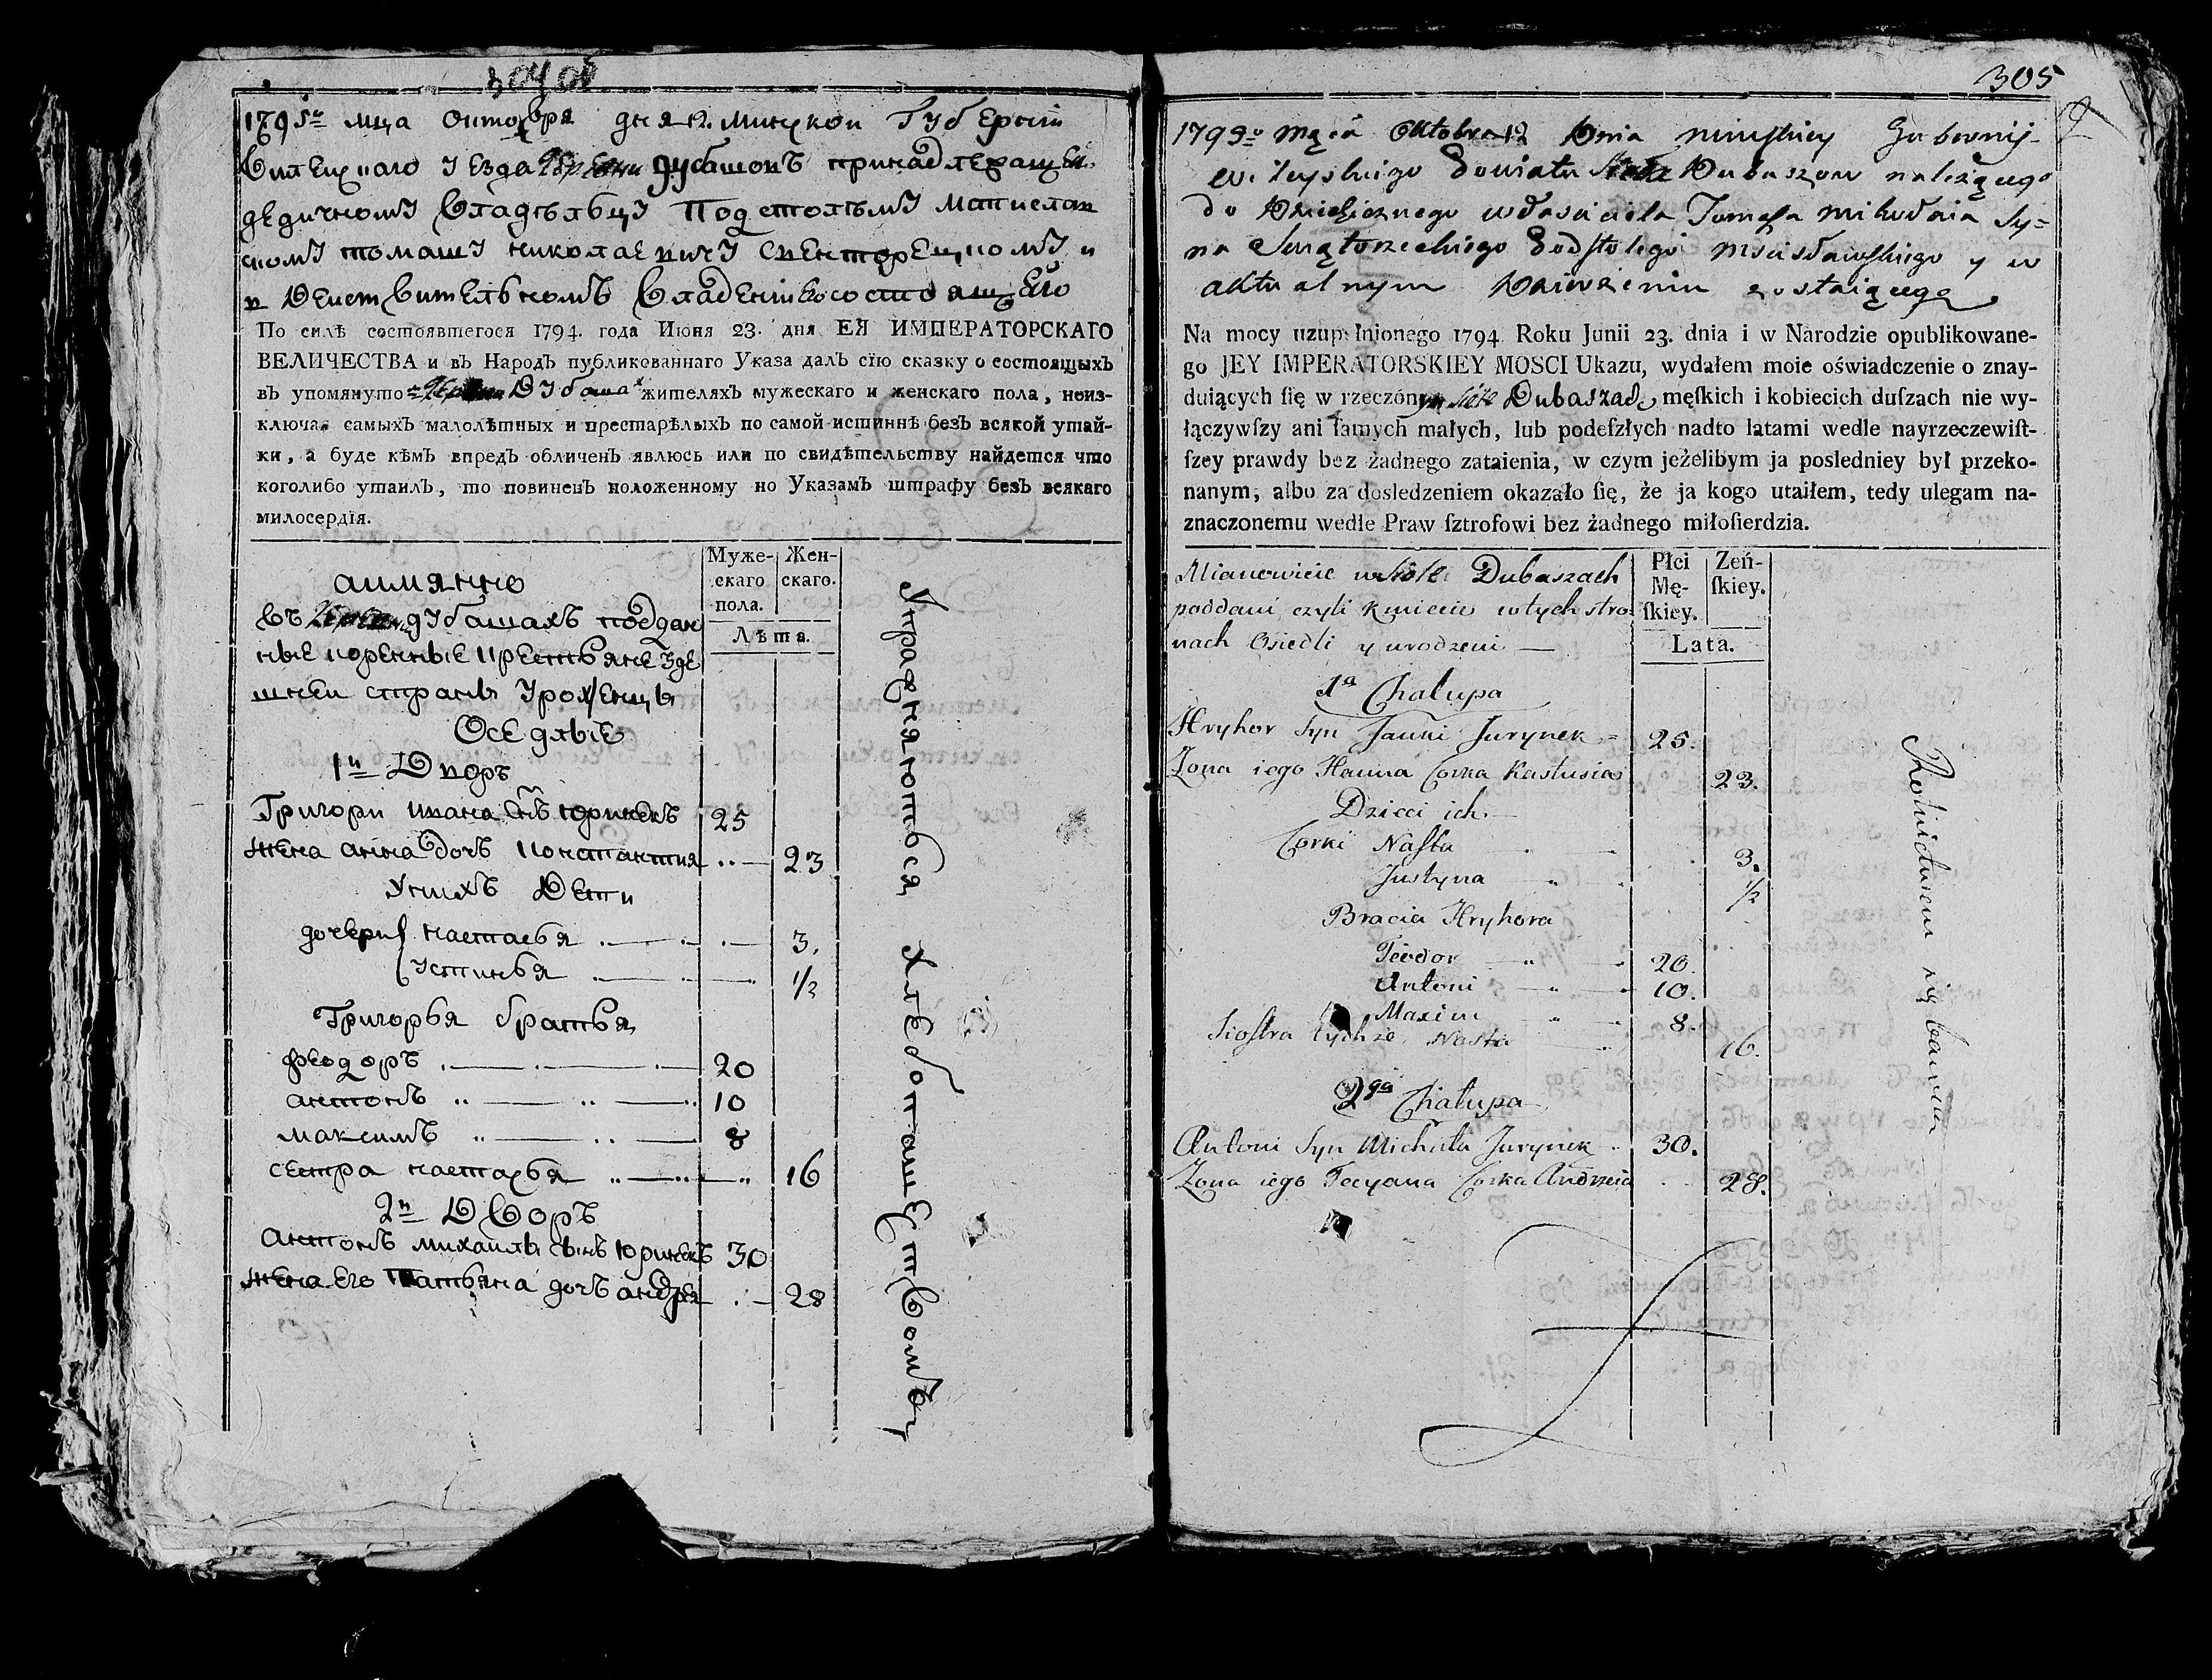 304 об
1795го мца октября дня 12. минской Губернiи
Вилейскаго уезда Деревни Дубашовъ принадлежащей
дедичному Владѣльцу Подстолѣму Мстислав
скому томашу николаевичу Свенторецкому и
в Действительномъ Владенiи его состоящей
По силѣ состоявшегося 1794. года Июня 23. дня ЕЯ ИМПЕРАТОРСКАГО
ВЕЛИЧЕСТВА и въ Народъ публикованнаго Указа далъ сїю сказку о состоящыхъ
въ упомянуто Дубашахъ жителяхъ мужескаго и женскаго пола, неиз-
ключая самыхъ малолѣтныхъ и престарѣлыхъ по самой истиннѣ безъ всякой утай-
ки, а буде кѣмъ впредъ обличенъ явлюсь или по свидѣтельству найдется что
коголибо утаилъ, то повиненъ положенному по Указамъ штрафу безъ всякаго
милосердїя.
Муже-скаго пола. Жен-скаго.
Лѣта.
аимянно
въ дубашахъ поддан
ные коренные крестьяне зде
шней страны Уроженцы
Оседлые
1й Дворъ
Григори ивана снъ юринокъ 25
жена анна дочъ константия 23
Унихъ Дети
дочери настасья 3.
устинья 1/2
Григорья братья
феодоръ 20
антонъ 10
максимъ 8
сестра настасья 16
2й Дворъ
Антонъ михайлы снъ юринокъ 30
жена его татьяна дочъ андрея 28
Упражняются хлебопашеством
305
1795o Mąca Oktobra 12 Dnia mińskiey Gubernij
wileyskiego Powiatu Dubaszow należącego
do Dziedzicznego własciciela Tomasza mikołaia Sy=
na Swiątorzeckiego Podstolego Mscisławskiego y w
aktualnym Dzierżeniu zostaiącego
Na mocy uzupełnionego 1794 Roku Junii 23. dnia i w Narodzie opublikowane-
go JEY IMPERATORSKIEY MOSCI Ukazu, wydałem moie oświadczenie o znay-
duiących ſię w rzeczonym Siole Dubaszach męſkich i kobiecich duſzach nie wy-
łączywſzy ani ſamych małych, lub podeſzłych nadto latami wedle nayrzeczewiſt-
ſzey prawdy bez żadnego zataienia, w czym jeżelibym ja posledniey był przeko-
nanym, albo za dosledzeniem okazało ſię, że ja kogo utaiłem, tedy ulegam na-
znaczonemu wedle Praw ſztrofowi bez żadnego miłoſierdzia.
Płci Mę-ſkiey. Żeń-ſkiey.
Lata.
Mianowicie w Siole Dubaszach
poddani czyli kmiecie w tych stro
nach Osiedli y urodzeni
1a Chałupa
Hryhor Syn Janki Jurynek 25.
Zona iego Hanna Corka Kastusia 23.
Dzieci ich
Corki Nasta 3.
Justyna 1/2
Bracia Hryhora
Teodor 20.
Antoni 10.
Maxim 8.
Siostra tychże Nasta 16.
2ga Chałupa
Antoni Syn Michała Jurynek 30.
Zona iego Tacyana Corka Andrzeia 28.
Rolnictwem się bawią